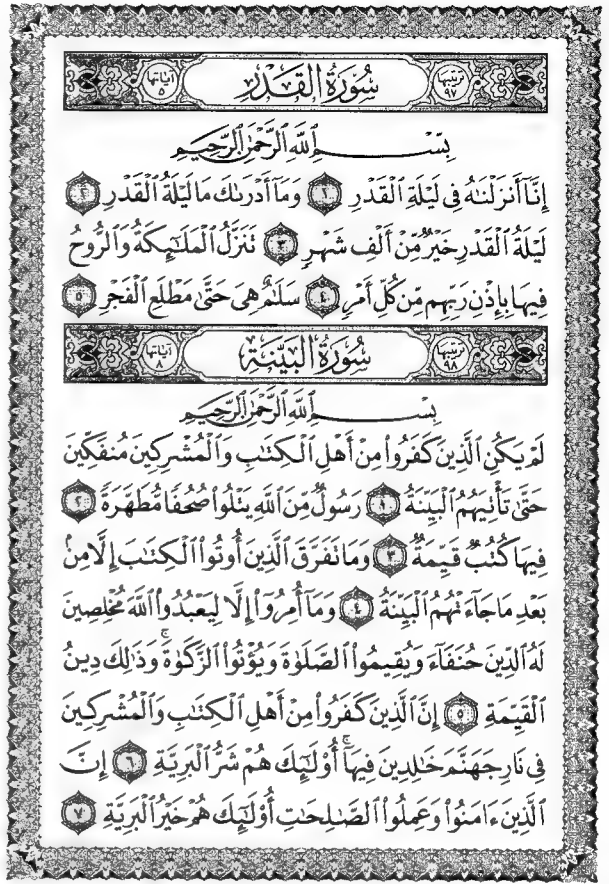 ترتيبها ٩٧ سُورَةُ القَدْرِ آياتها ٥
بِسْمِ اللَّهِ الرَّحْمَٰنِ الرَّحِيمِ
إِنَّا أَنزَلْنَٰهُ فِى لَيْلَةِ الْقَدْرِ ١ وَمَا أَدْرَىٰكَ مَا لَيْلَةُ الْقَدْرِ ٢
لَيْلَةُ الْقَدْرِ خَيْرٌ مِّنْ أَلْفِ شَهْرٍ ٣ تَنَزَّلُ الْمَلَٰٓئِكَةُ وَالرُّوحُ
فِيهَا بِإِذْنِ رَبِّهِم مِّن كُلِّ أَمْرٍ ٤ سَلَٰمٌ هِىَ حَتَّىٰ مَطْلَعِ الْفَجْرِ ٥
ترتيبها ٩٨ سُورَةُ البَيِّنَةِ آياتها ٨
بِسْمِ اللَّهِ الرَّحْمَٰنِ الرَّحِيمِ
لَمْ يَكُنِ الَّذِينَ كَفَرُوا مِنْ أَهْلِ الْكِتَٰبِ وَالْمُشْرِكِينَ مُنفَكِّينَ
حَتَّىٰ تَأْتِيَهُمُ الْبَيِّنَةُ ١ رَسُولٌ مِّنَ اللَّهِ يَتْلُوا صُحُفًا مُّطَهَّرَةً ٢
فِيهَا كُتُبٌ قَيِّمَةٌ ٣ وَمَا تَفَرَّقَ الَّذِينَ أُوتُوا الْكِتَٰبَ إِلَّا مِنۢ
بَعْدِ مَا جَآءَتْهُمُ الْبَيِّنَةُ ٤ وَمَآ أُمِرُوٓا إِلَّا لِيَعْبُدُوا اللَّهَ مُخْلِصِينَ
لَهُ الدِّينَ حُنَفَآءَ وَيُقِيمُوا الصَّلَوٰةَ وَيُؤْتُوا الزَّكَوٰةَ ۚ وَذَٰلِكَ دِينُ
الْقَيِّمَةِ ٥ إِنَّ الَّذِينَ كَفَرُوا مِنْ أَهْلِ الْكِتَٰبِ وَالْمُشْرِكِينَ
فِى نَارِ جَهَنَّمَ خَٰلِدِينَ فِيهَآ ۚ أُو۟لَٰٓئِكَ هُمْ شَرُّ الْبَرِيَّةِ ٦ إِنَّ
الَّذِينَ ءَامَنُوا وَعَمِلُوا الصَّٰلِحَٰتِ أُو۟لَٰٓئِكَ هُمْ خَيْرُ الْبَرِيَّةِ ٧